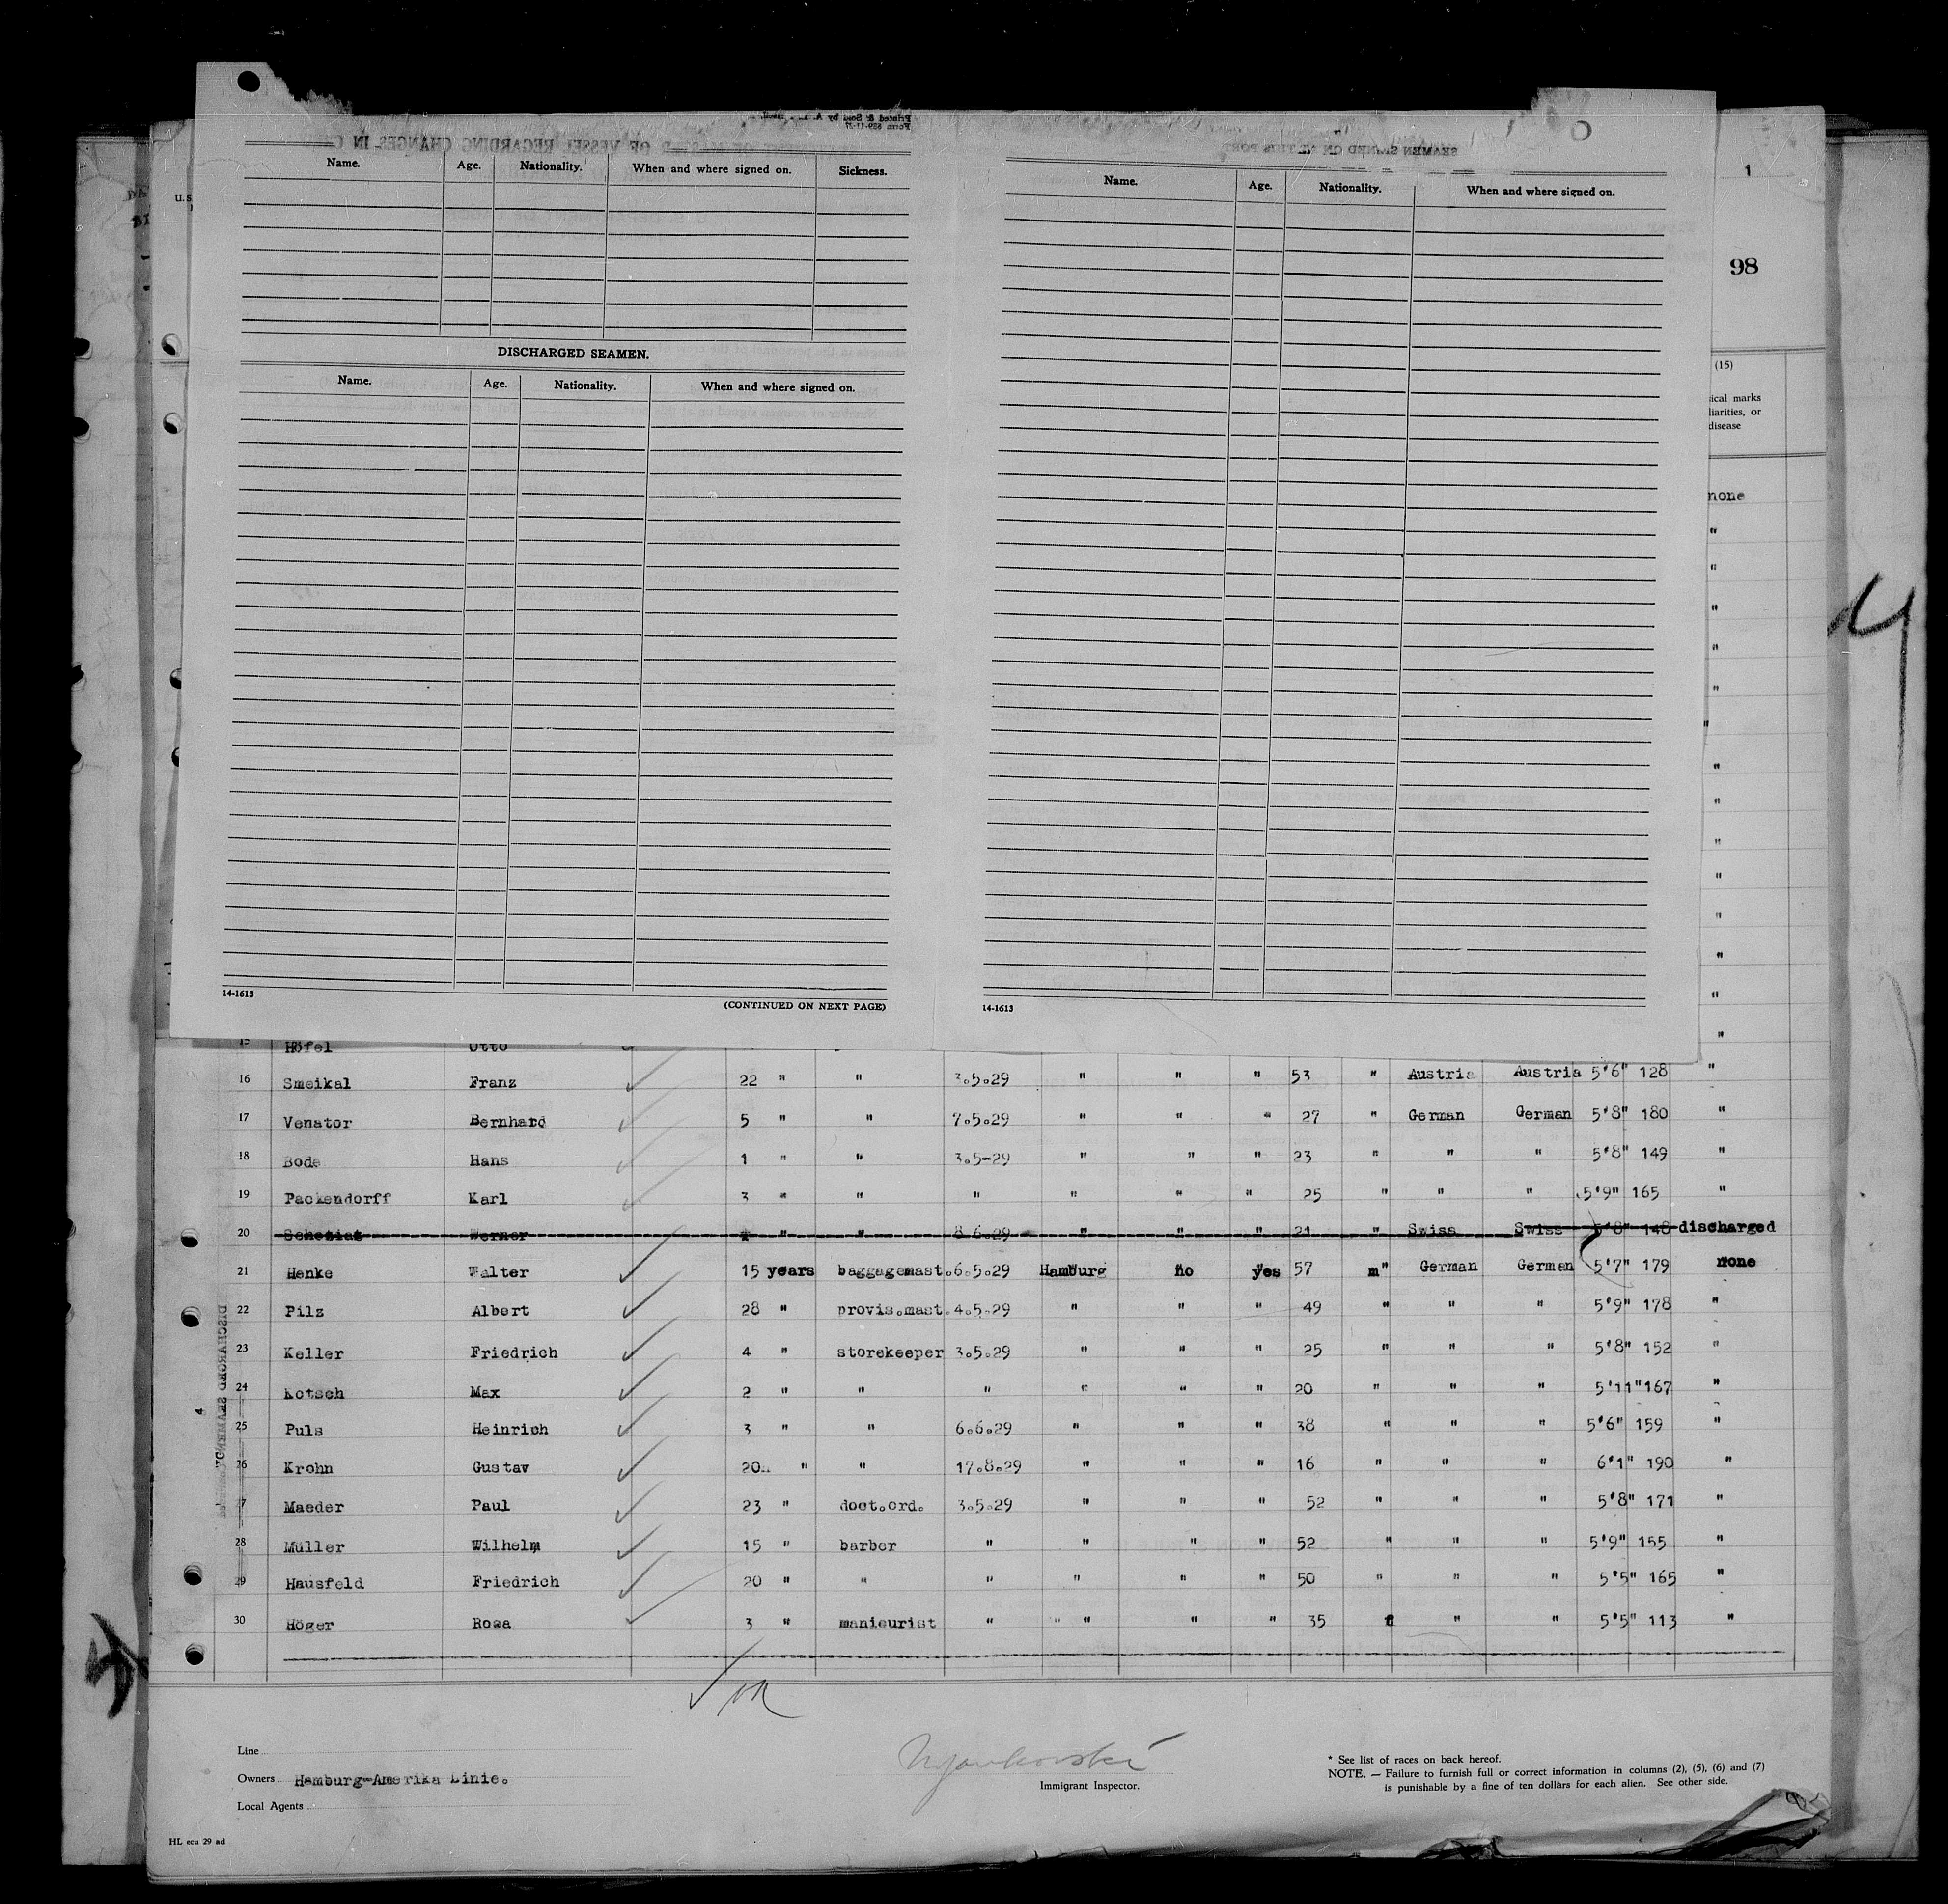 Name. Age. Nationality. When and where signed on. Sickness.
DISCHARGED SEAMEN.
Name. Age. Nationality. When and where signed on.
14-1613 (CONTINUED ON NEXT PAGE)
Name. Age. Nationality. When and where signed on.
14-1613
1
98
(15)
none
"
"
"
"
"
"
"
"
"
"
"
"
"
"
15 Höfel Otto
16 Smeikal Franz 22 " " 3.5.29 " " " 53 " Austria Austria 5'6" 128 "
17 Venator Bernhard 5 " " 7.5.29 " " " 27 " German German 5'8" 180 "
18 Bode Hans 1 " " 3.5-29 " " " 23 " " " 5'8" 149 "
19 Packendorff Karl 3 " " " " " " 25 " " " 5'9" 165 "
20 Werner " " 8.6.29 " " " 21 " Swiss Swiss 5'8" 148 discharged
21 Henke Walter 15 years baggagemast. 6.5.29 Hamburg no yes 57 m" German German 5'7" 179 none
22 Pilz Albert 28 " provis.mast. 4.5.29 " " " 49 " " " 5'9" 178 "
23 Keller Friedrich 4 " storekeeper 3.5.29 " " " 25 " " " 5'8" 152 "
24 Kotsch Max 2 " " " " " " 20 " " " 5'11" 167 "
25 Puls Heinrich 3 " " 6.6.29 " " " 38 " " " 5'6" 159 "
26 Krohn Gustav 20.. " " 17.8.29 " " " 16 " " " 6'1" 190 "
27 Maeder Paul 23 " doct.ord. 3.5.29 " " " 52 " " " 5'8" 171 "
28 Müller Wilhelm 15 " barber " " " " 52 " " " 5'9" 155 "
29 Hausfeld Friedrich 20 " " " " " " 50 " " " 5'5" 165 "
30 Höger Rosa 3 " manicurist " " " " 35 f " " 5'5" 113 "
Line
Owners Hamburg-Amerika Linie.
Local Agents
Immigrant Inspector.
* See list of races on back hereof.
NOTE. — Failure to furnish full or correct information in columns (2), (5), (6) and (7)
is punishable by a fine of ten dollars for each alien. See other side.
HL ecu 29 ad